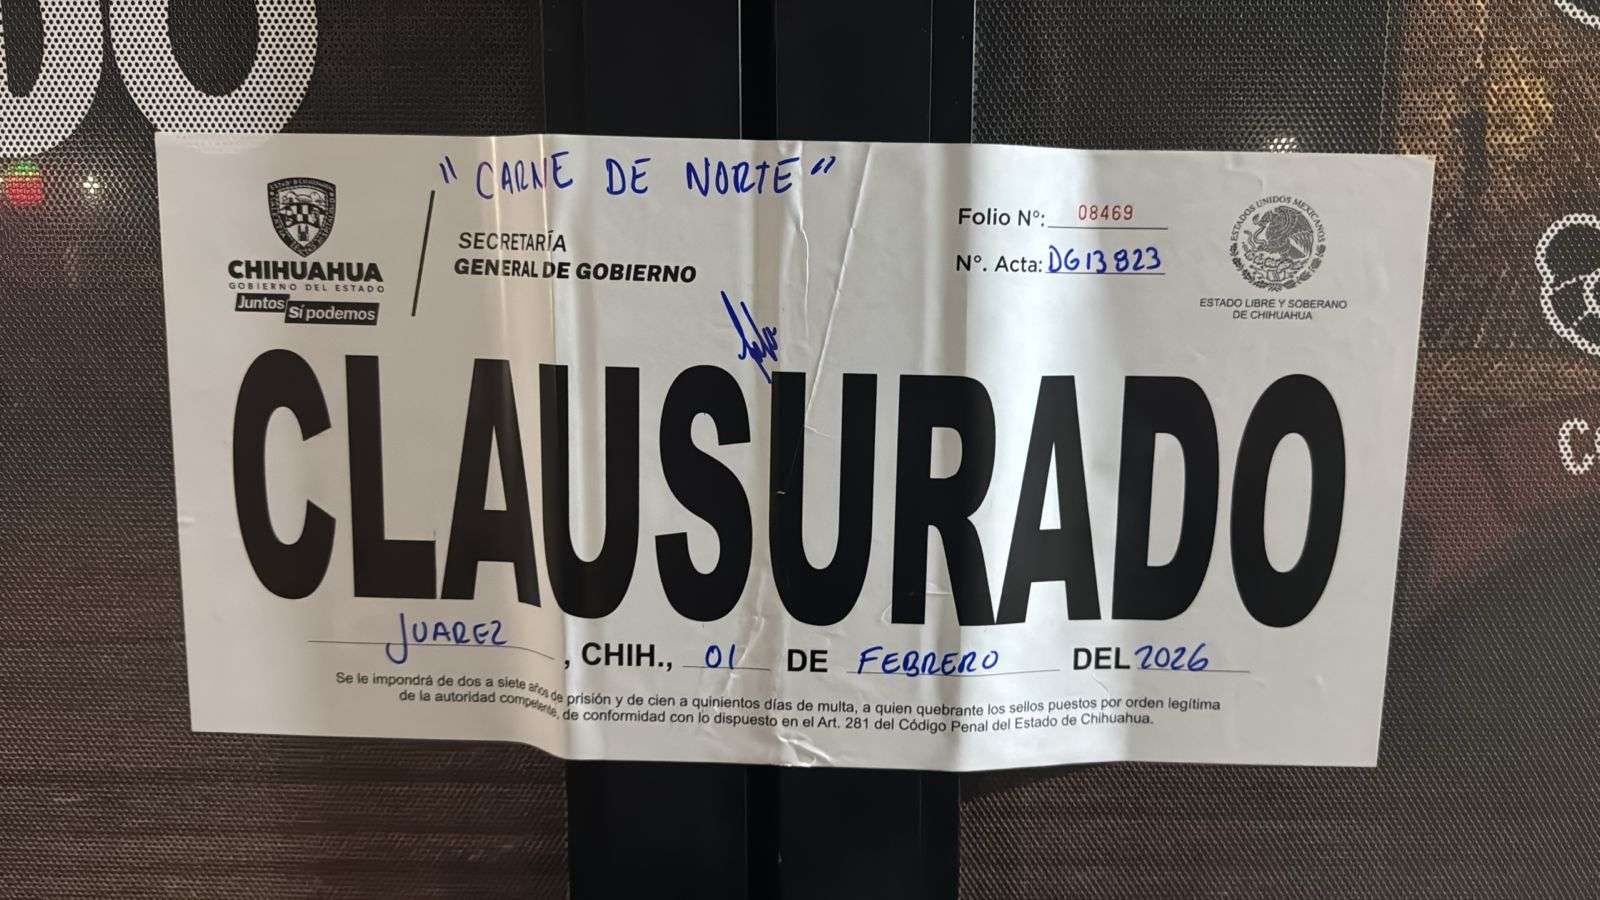 DO
"CARNE DE NORTE"
CHIHUAHUA
GOBIERNO DEL ESTADO
Juntos Sí podemos
SECRETARÍA
GENERAL DE GOBIERNO
Folio Nº: 08469
Nº. Acta: DG13823
ESTADOS UNIDOS MEXICANOS
ESTADO LIBRE Y SOBERANO
DE CHIHUAHUA
CLAUSURADO
JUAREZ, CHIH., 01 DE FEBRERO DEL 2026
Se le impondrá de dos a siete años de prisión y de cien a quinientos días de multa, a quien quebrante los sellos puestos por orden legítima
de la autoridad competente, de conformidad con lo dispuesto en el Art. 281 del Código Penal del Estado de Chihuahua.